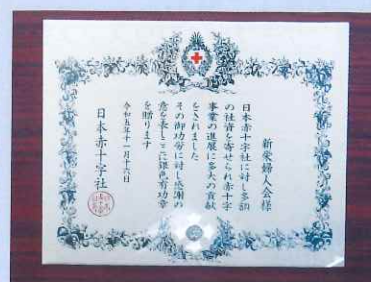 新栄婦人会様
日本赤十字社に対し多額
の社資を寄せられ赤十字
事業の進展に多大の貢献
をされました
その御功労に対し感謝の
意を表しここに銀色有功章
を贈ります
令和五年十一月十六日
日本赤十字社